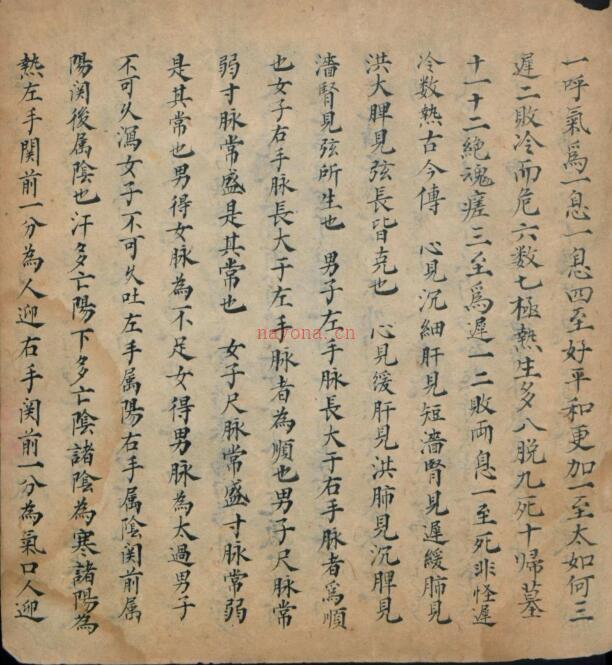 一呼氣爲一息一息四至好平和更加一至太如何三
遲二敗冷而危六数七極熱生多八脱九死十歸墓
十一十二絶魂瘥三至爲遲一二敗两息一至死非怪遲
冷数熱古今傳 心見沉細肝見短濇腎見遲緩肺見
洪大脾見弦長皆克也 心見緩肝見洪肺見沉脾見
濇腎見弦所生也 男子左手脉長大于右手脉者爲順
也女子右手脉長大于左手脉者為順也男子尺脉常
弱寸脉常盛是其常也 女子尺脉常盛寸脉常弱
是其常也男得女脉為不足女得男脉為太過男子
不可久瀉女子不可久吐左手属陽右手属陰関前属
陽関後属陰也汗多亡陽下多亡陰諸陰為寒諸陽為
熱左手関前一分為人迎右手関前一分為氣口人迎
nayona.cn